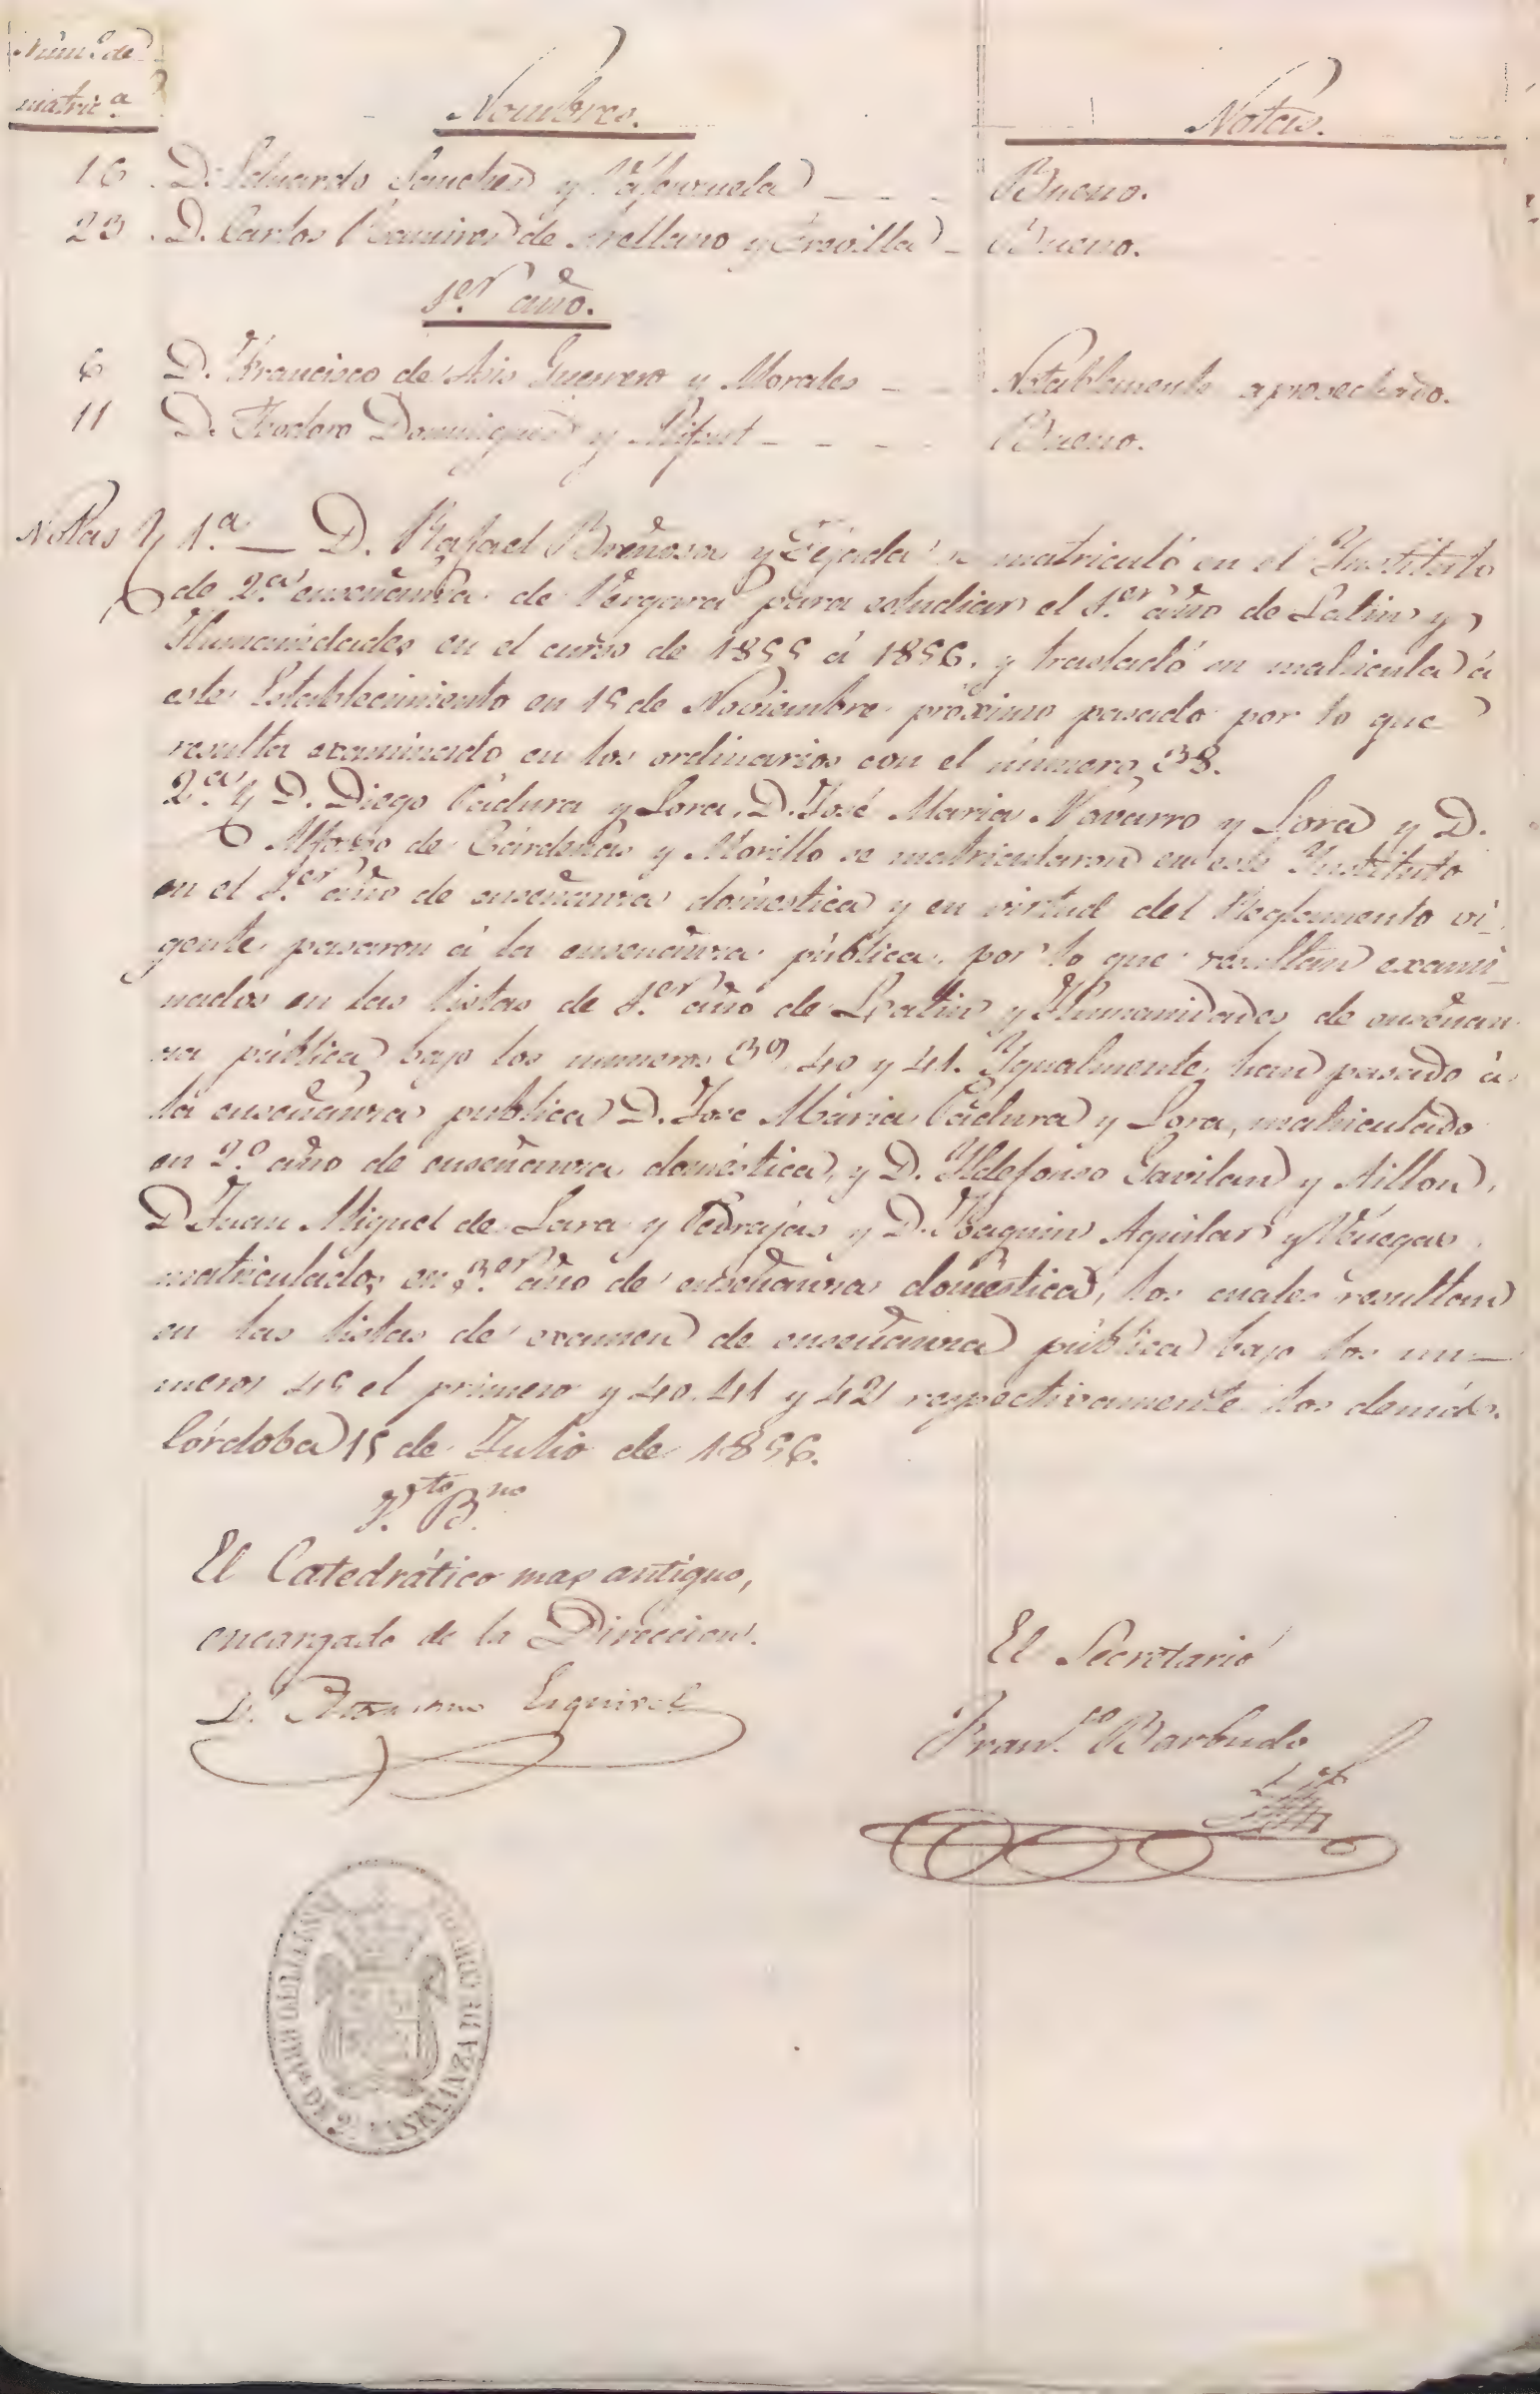 Núm.º de
matric.ª
Nombres.
Notas.
16 D. Eduardo Sanchez y Valenzuela Bueno.
23 D. Carlos Ramirez de Arellano y Bueno.
1.er año.
6 D. Francisco de Asis Guerrero y Morales Notablemente aprovechado.
11 D. Teodoro Dominguez y Bueno.
Notas 1.ª — D. Rafael Breñosa y Tejada se matriculó en el Ynstituto
de 2.ª enseñanza de Vergara para estudiar el 1.er año de Latin y
Humanidades en el curso de 1855 á 1856, y trasladó su matricula á
este Establecimiento en 15 de Noviembre próximo pasado por lo que
resulta examinado en los ordinarios con el número 38.
2.ª D. Diego Cádura y Lora, D. José Maria Navarro y Lora y D.
Alfonso de Cárdenas y Morillo se matricularon en este Ynstituto
en el 1.er año de enseñanza doméstica y en virtud del Reglamento vi-
gente pasaron á la enseñanza pública, por lo que resultan exami-
nados en las listas de 1.er año de Latin y Humanidades de enseñan-
za pública bajo los numeros 39, 40 y 41. Ygualmente han pasado á
la enseñanza publica D. Jose Maria Cádura y Lora, matriculado
en 2.º año de enseñanza doméstica, y D. Yldefonso Gavilan y Aillon,
D Juan Miguel de Lara y Pedrajas y D. Joaquin Aguilar y Venegas,
matriculados en 3.er año de enseñanza doméstica, los cuales resultan
en las listas de examen de enseñanza pública bajo los nu-
meros 45 el primero y 40, 41 y 42 respectivamente los demás.
Córdoba 15 de Julio de 1856.
V.to B.no
El Catedrático mas antiguo,
encargado de la Direccion.
Esquivel
El Secretario
Fran.co Barbudo